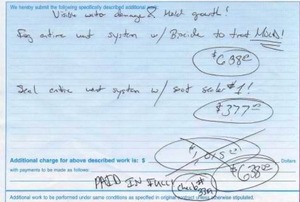 We hereby submit the following specifically described additional work:
Visible water damage & Mold growth!
Fog entire vent system w/ Biocide to treat MOLD!
$638
Seal entire vent system w/ soot sealer #1!
$377
Additional charge for above described work is: $
Dollars
with payments to be made as follows:
PAID IN FULL
check#
$638
Additional work to be performed under same conditions as specified in original contract unless otherwise stipulated.